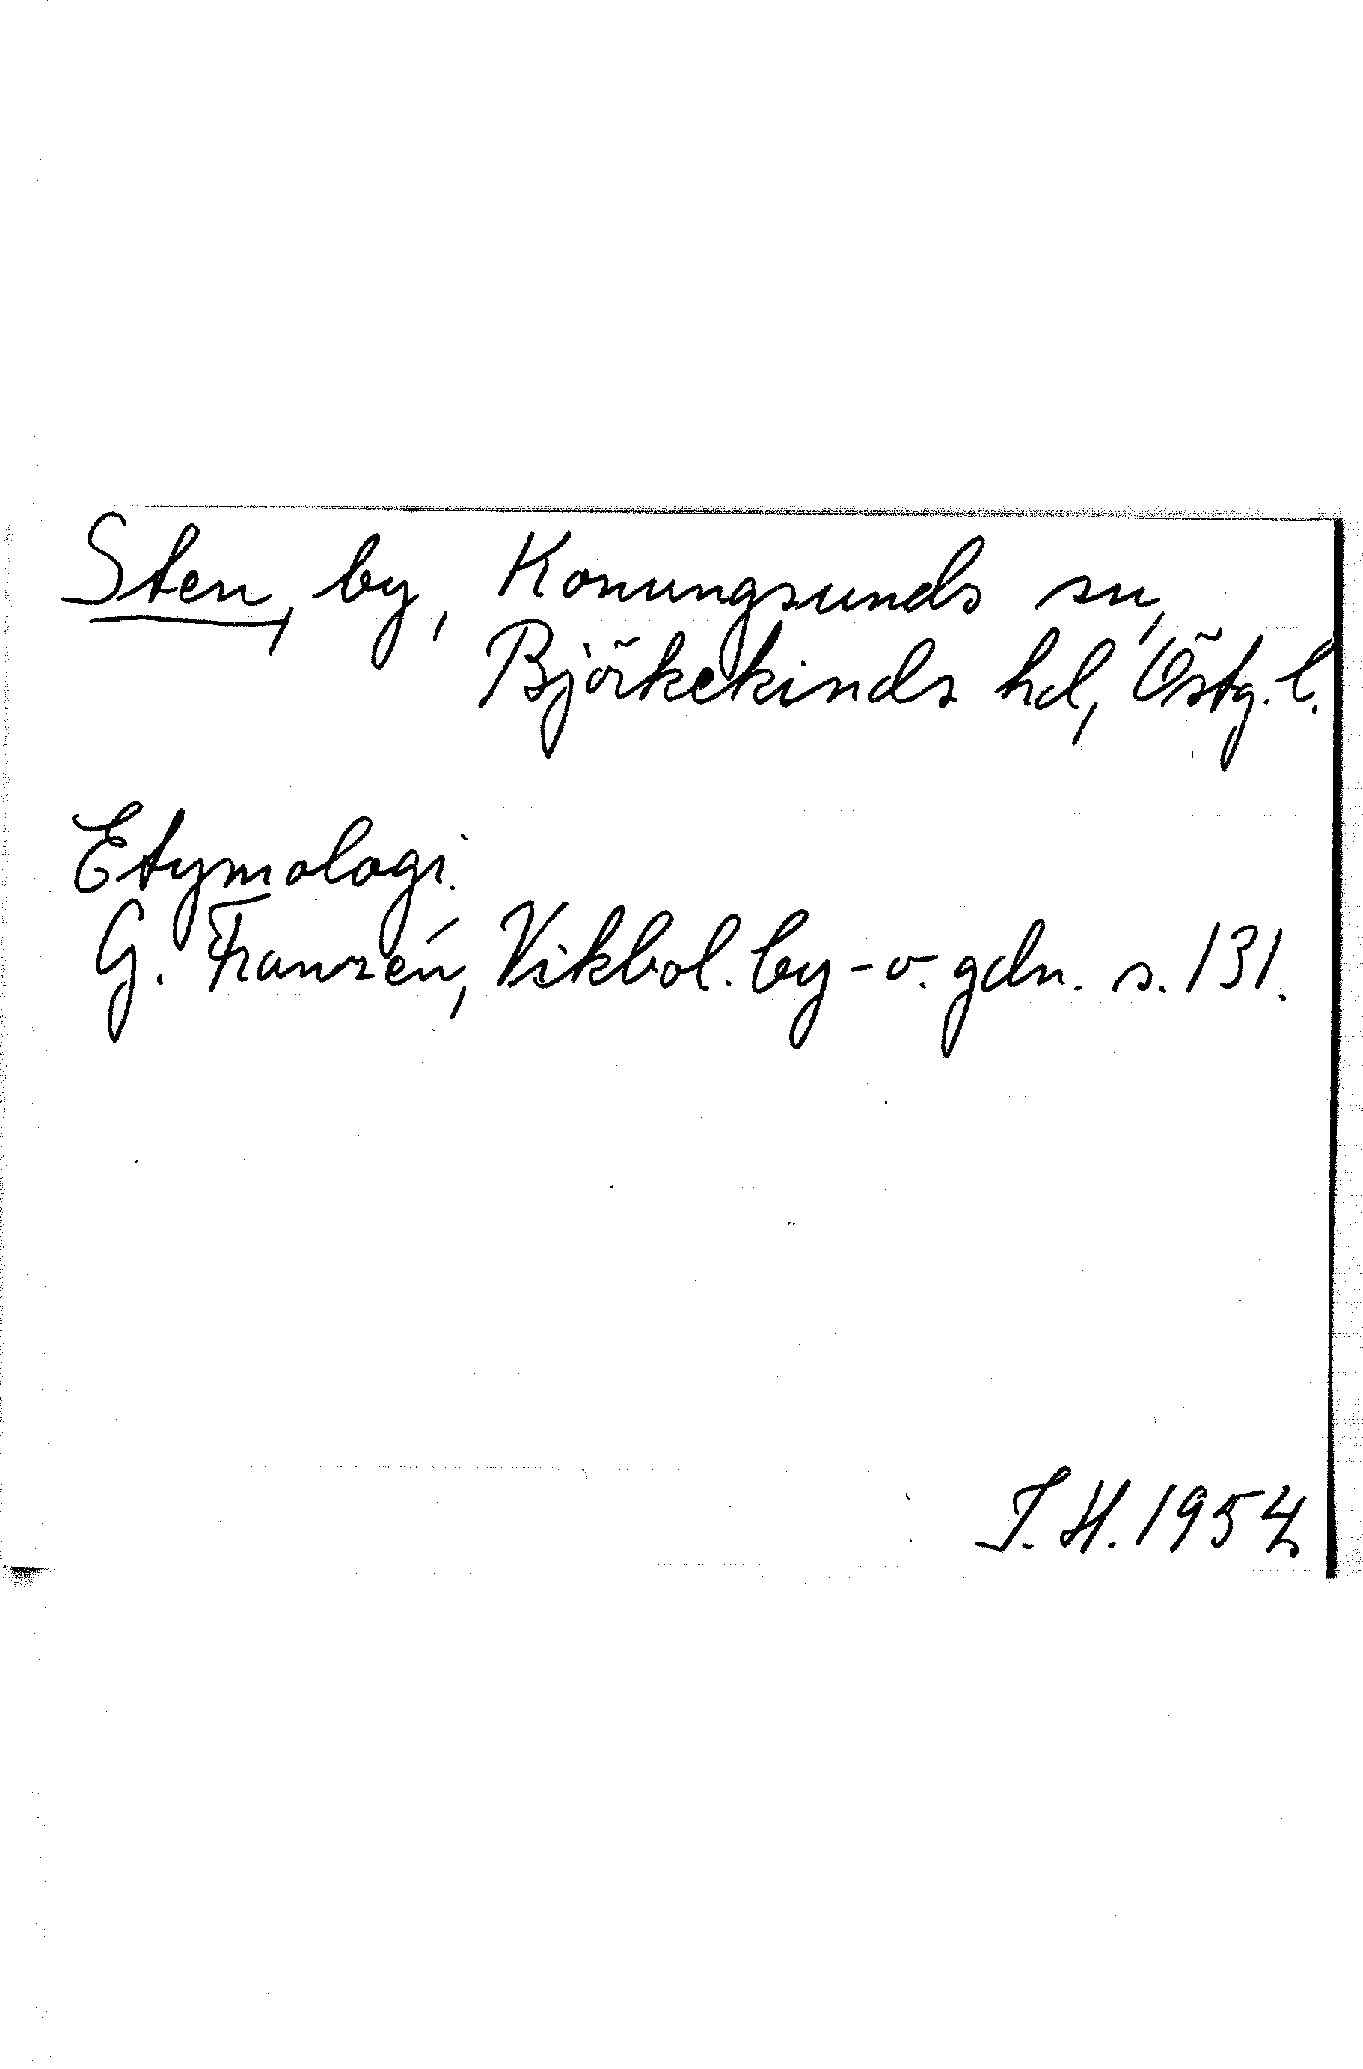 Sten, by, Konungsunds sn,
Björkekinds hd, Östg. l.
Etymologi.
G. Franzén, Vikbol. by- o. gdn. s. 131.
I. H. 1954